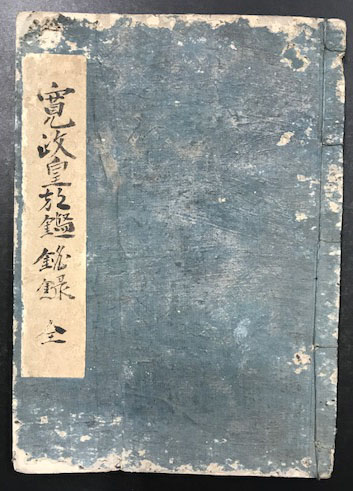 寛政皇都鑑銘録 全